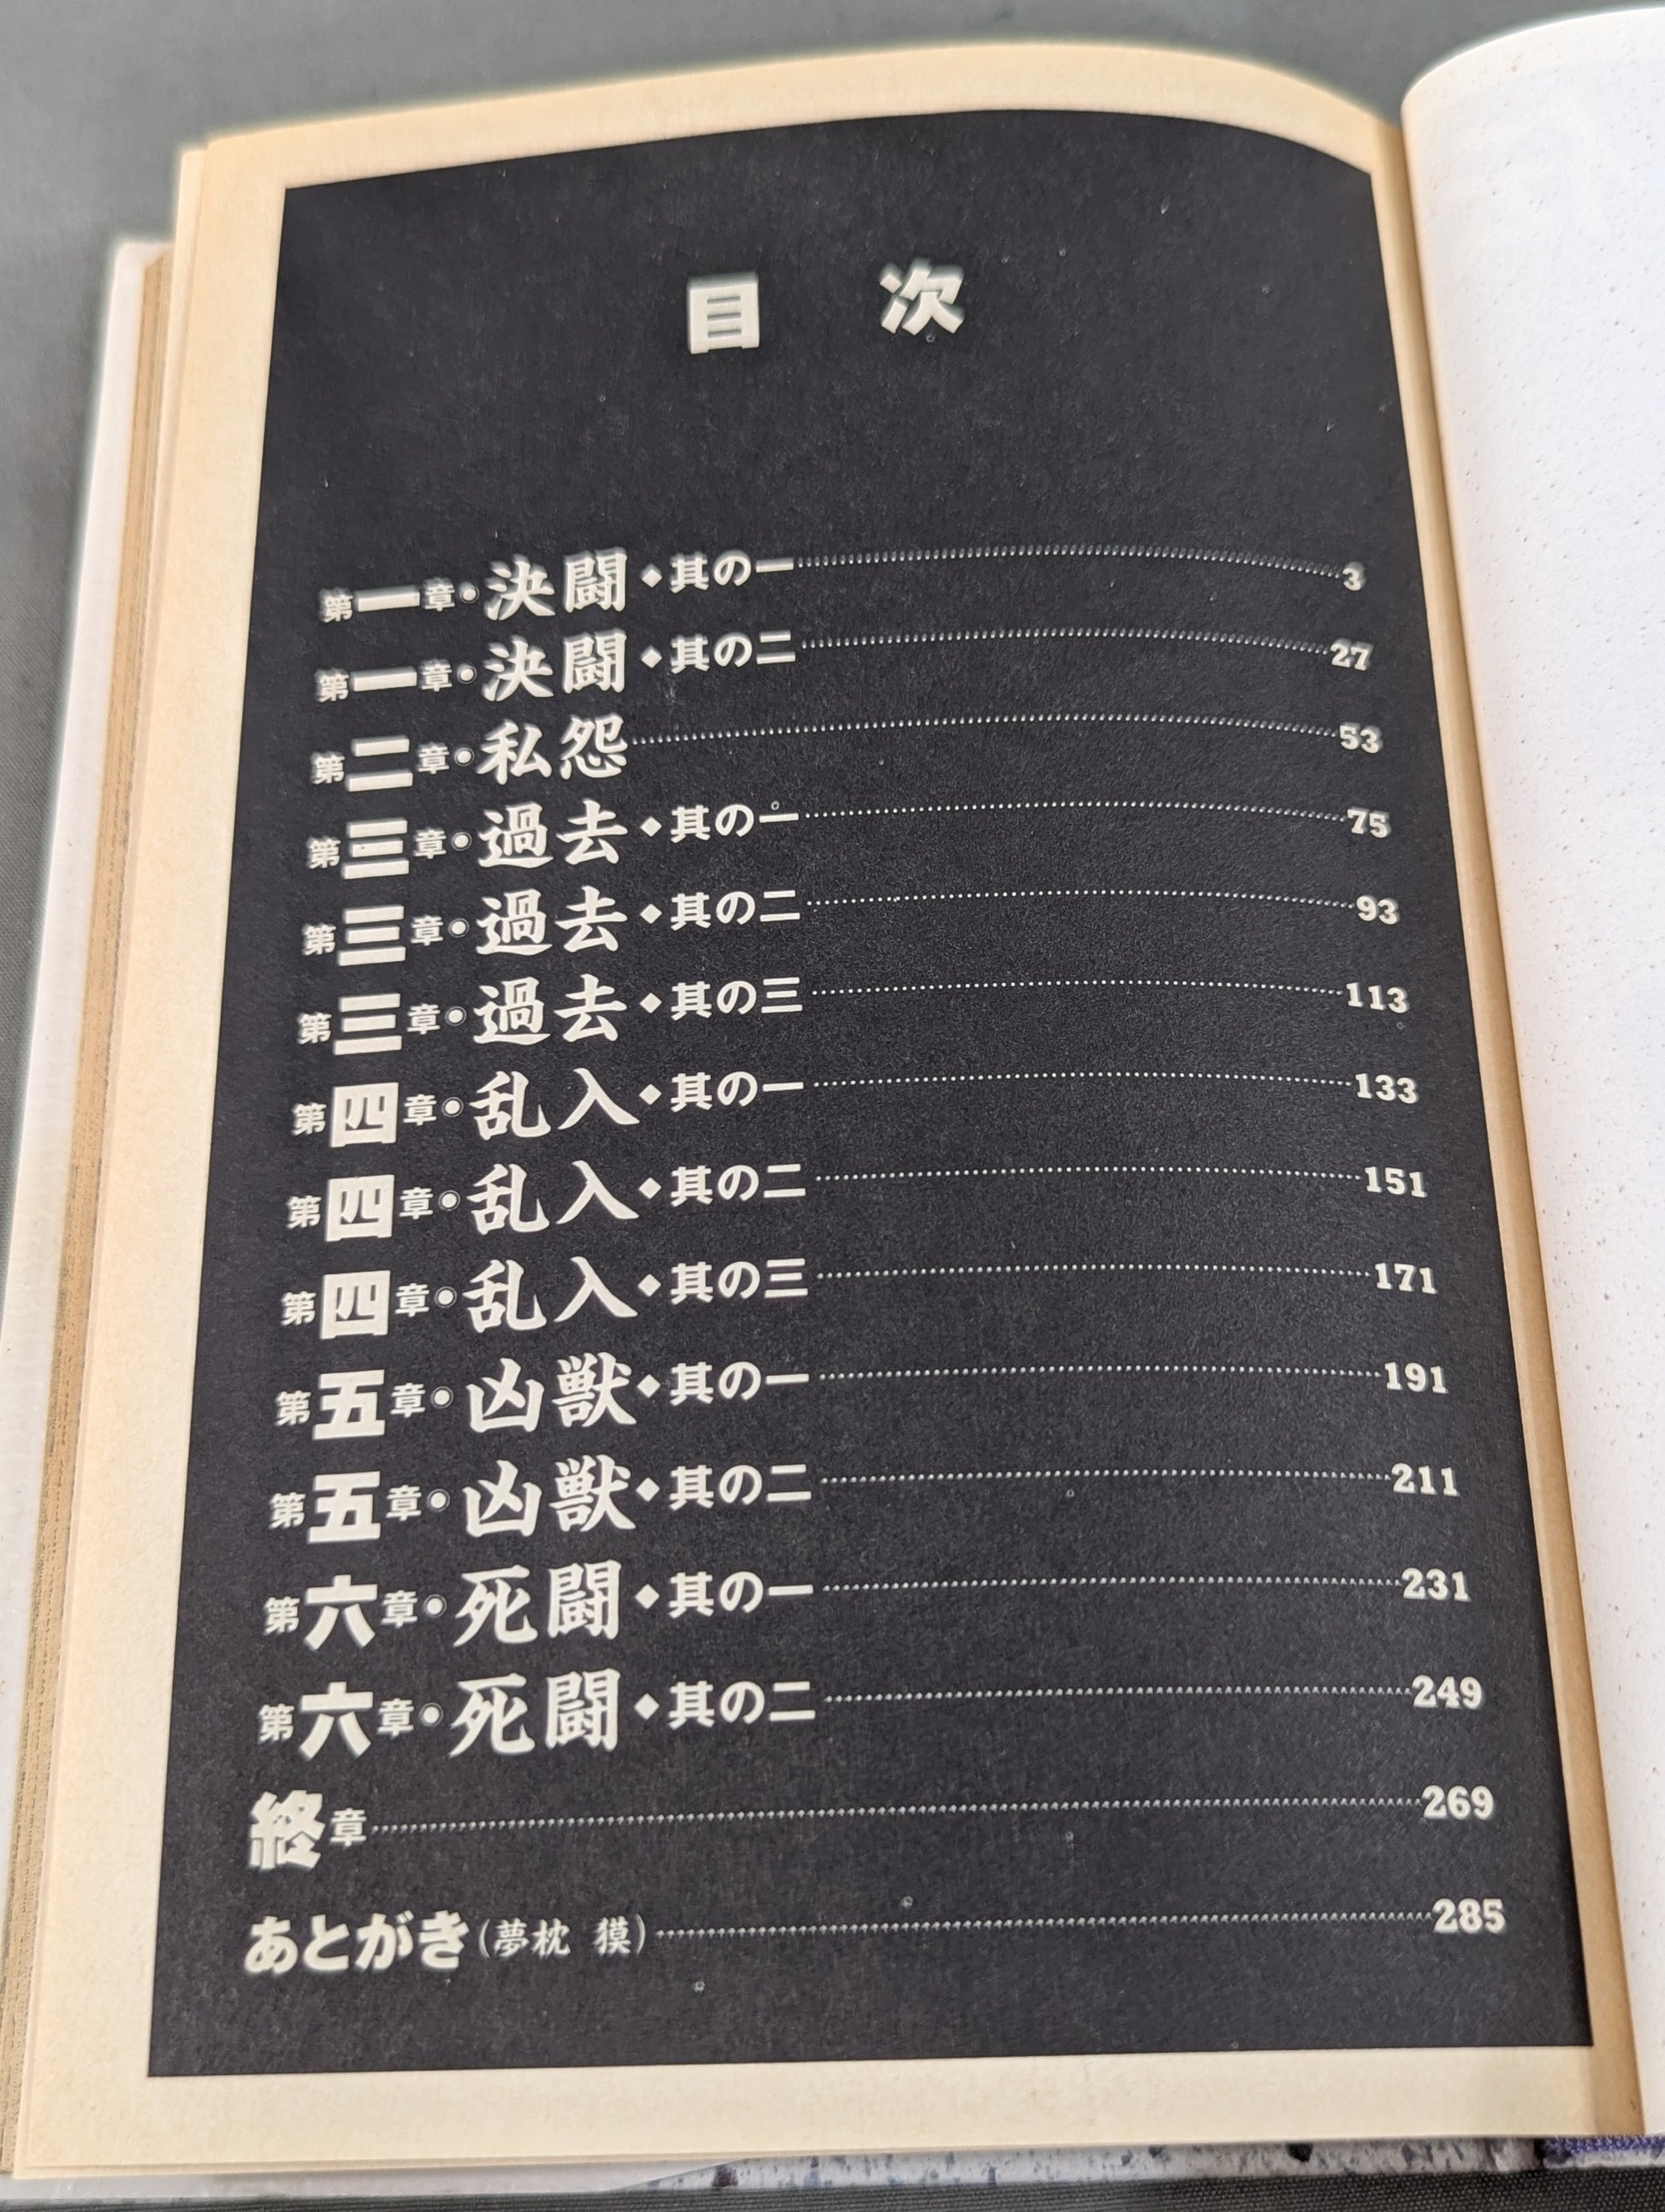 目 次
第一章●決闘◆其の一…………3
第一章●決闘◆其の二…………27
第二章●私怨…………53
第三章●過去◆其の一…………75
第三章●過去◆其の二…………93
第三章●過去◆其の三…………113
第四章●乱入◆其の一…………133
第四章●乱入◆其の二…………151
第四章●乱入◆其の三…………171
第五章●凶獣◆其の一…………191
第五章●凶獣◆其の二…………211
第六章●死闘◆其の一…………231
第六章●死闘◆其の二…………249
終章…………269
あとがき(夢枕 獏)…………285